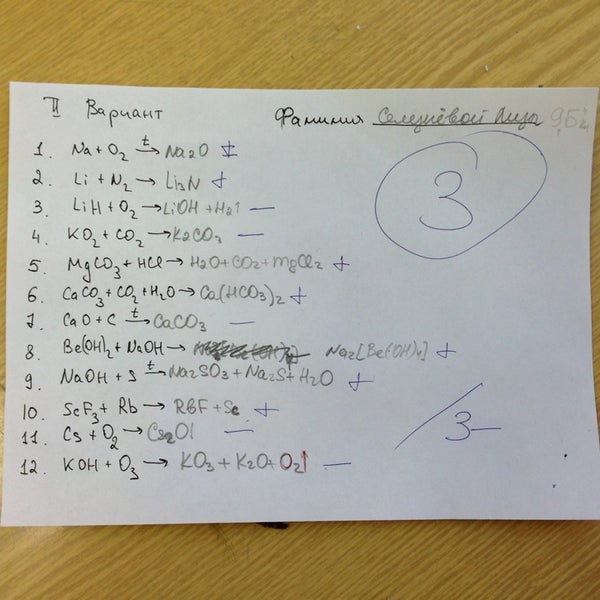 II Вариант Фамилия Селезнёвой Лизы 9Б
1. Na + O₂ →t Na₂O ±
2. Li + N₂ → Li₃N +
3. LiH + O₂ → LiOH + H₂↑ —
4. KO₂ + CO₂ → K₂CO₃ —
5. MgCO₃ + HCl → H₂O + CO₂ + MgCl₂ +
6. CaCO₃ + CO₂ + H₂O → Ca(HCO₃)₂ +
7. CaO + C →t CaCO₃ —
8. Be(OH)₂ + NaOH → Na₂[Be(OH)₄] +
9. NaOH + S →t Na₂SO₃ + Na₂S + H₂O +
10. ScF₃ + Rb → RbF + Sc +
11. Cs + O₂ → Cs₂O —
12. KOH + O₃ → KO₃ + K₂O + O₂↑ —
3
/3—